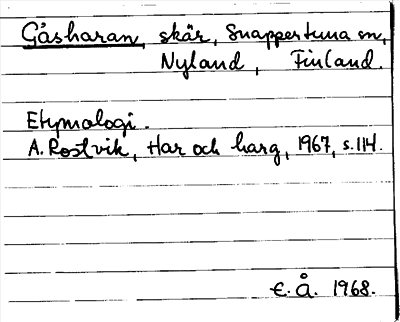 Gåsharan, skär, Snappertuna sn,
Nyland, Finland.
Etymologi.
A. Rostvik, Har och harg, 1967, s. 114.
E. Å. 1968.